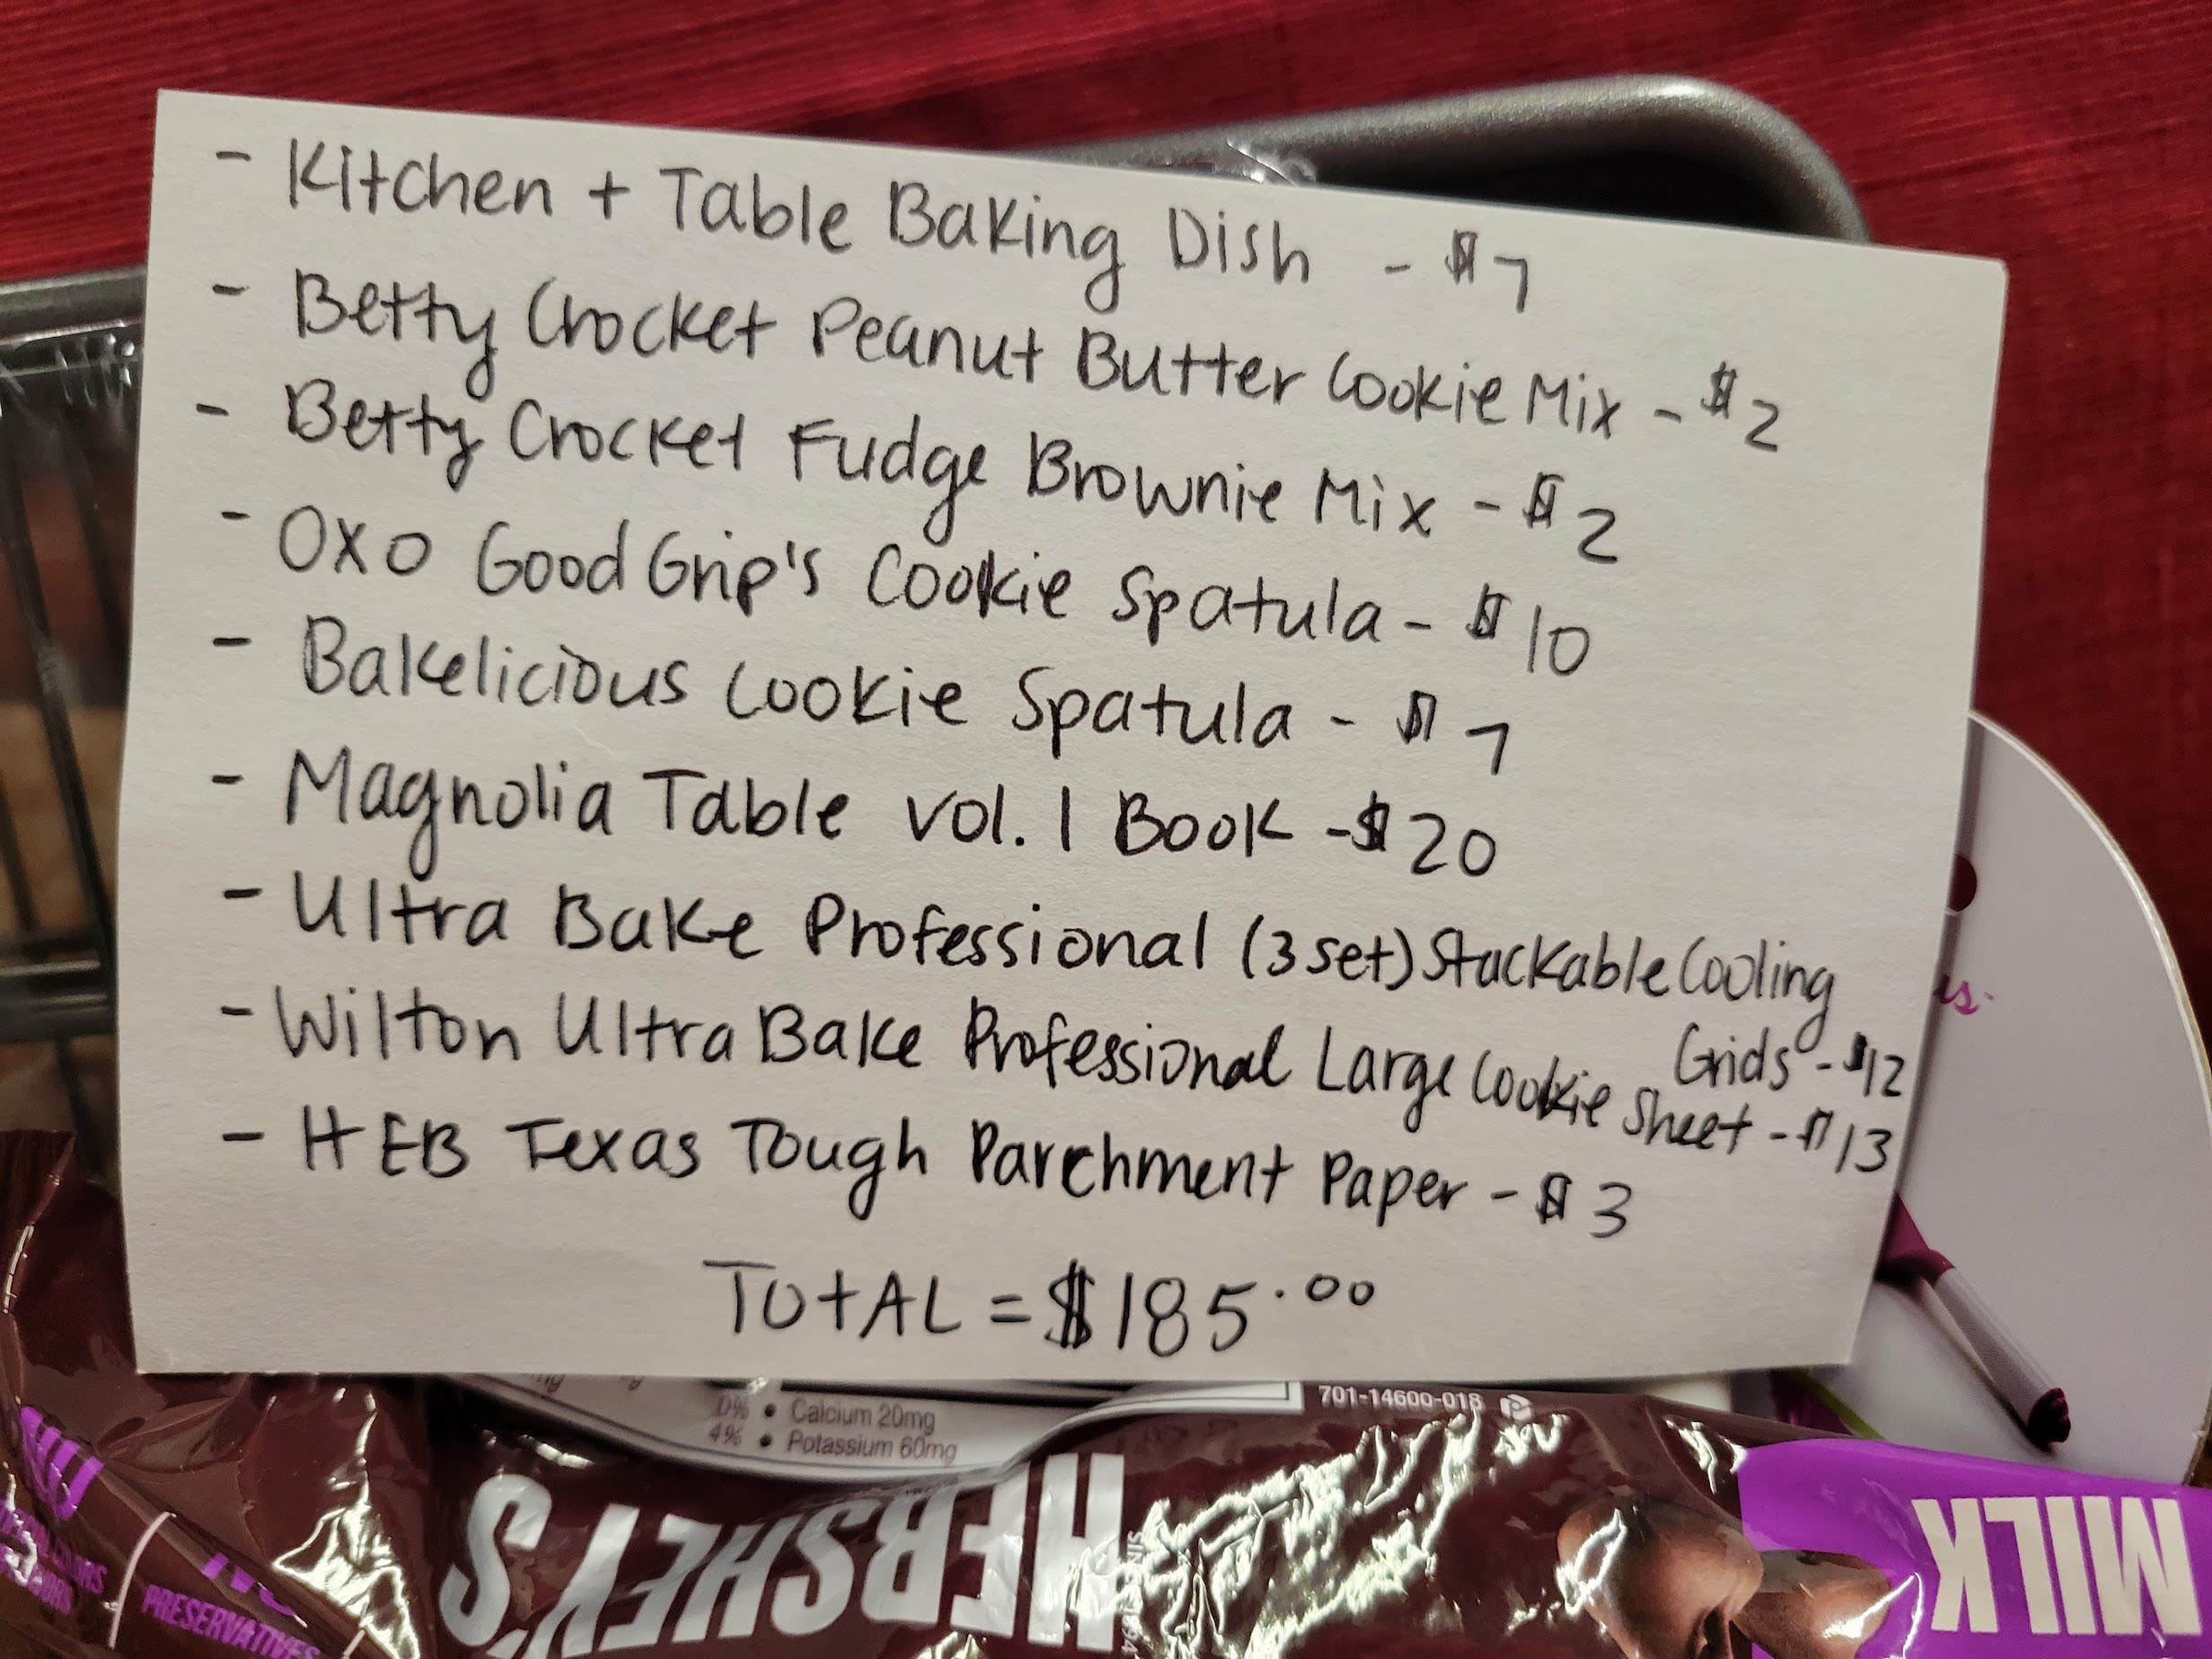 - Kitchen + Table Baking Dish - $7
- Betty Crocket Peanut Butter Cookie Mix - $2
- Betty Crocket Fudge Brownie Mix - $2
- OXO Good Grip's Cookie Spatula - $10
- Bakelicious Cookie Spatula - $7
- Magnolia Table vol. 1 Book - $20
- Ultra Bake Professional (3 set) Stackable Cooling
Grids - $12
- Wilton Ultra Bake Professional Large Cookie Sheet - $13
- HEB Texas Tough Parchment Paper - $3
TOtAL = $185.00
is.
0% • Calcium 20mg
4% • Potassium 60mg
701-14600-018
HERSHEY'S
MILK
PRESERVATIVES